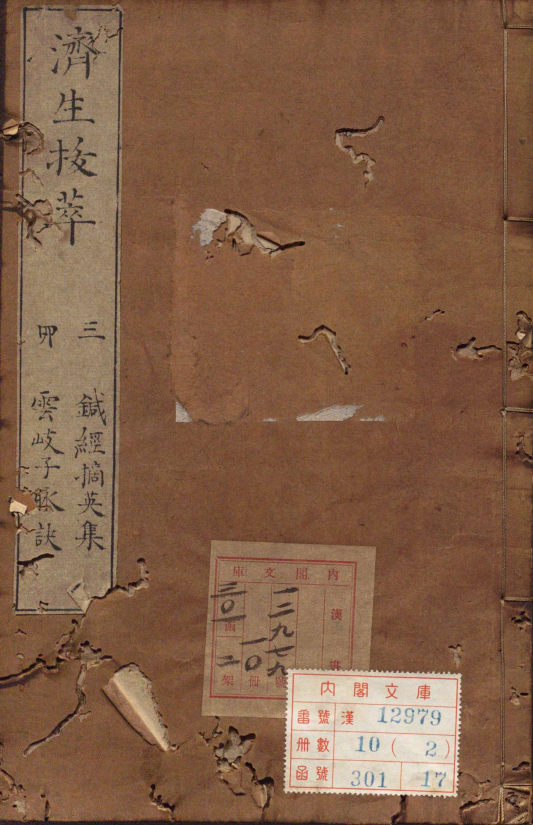 濟生拔萃
三 鍼經摘英集
四 雲岐子脉訣
內閣文庫
漢
一二九七九
一〇
三〇一函
二架
內閣文庫
番號 漢 12979
册數 10 ( 2 )
函號 301 17